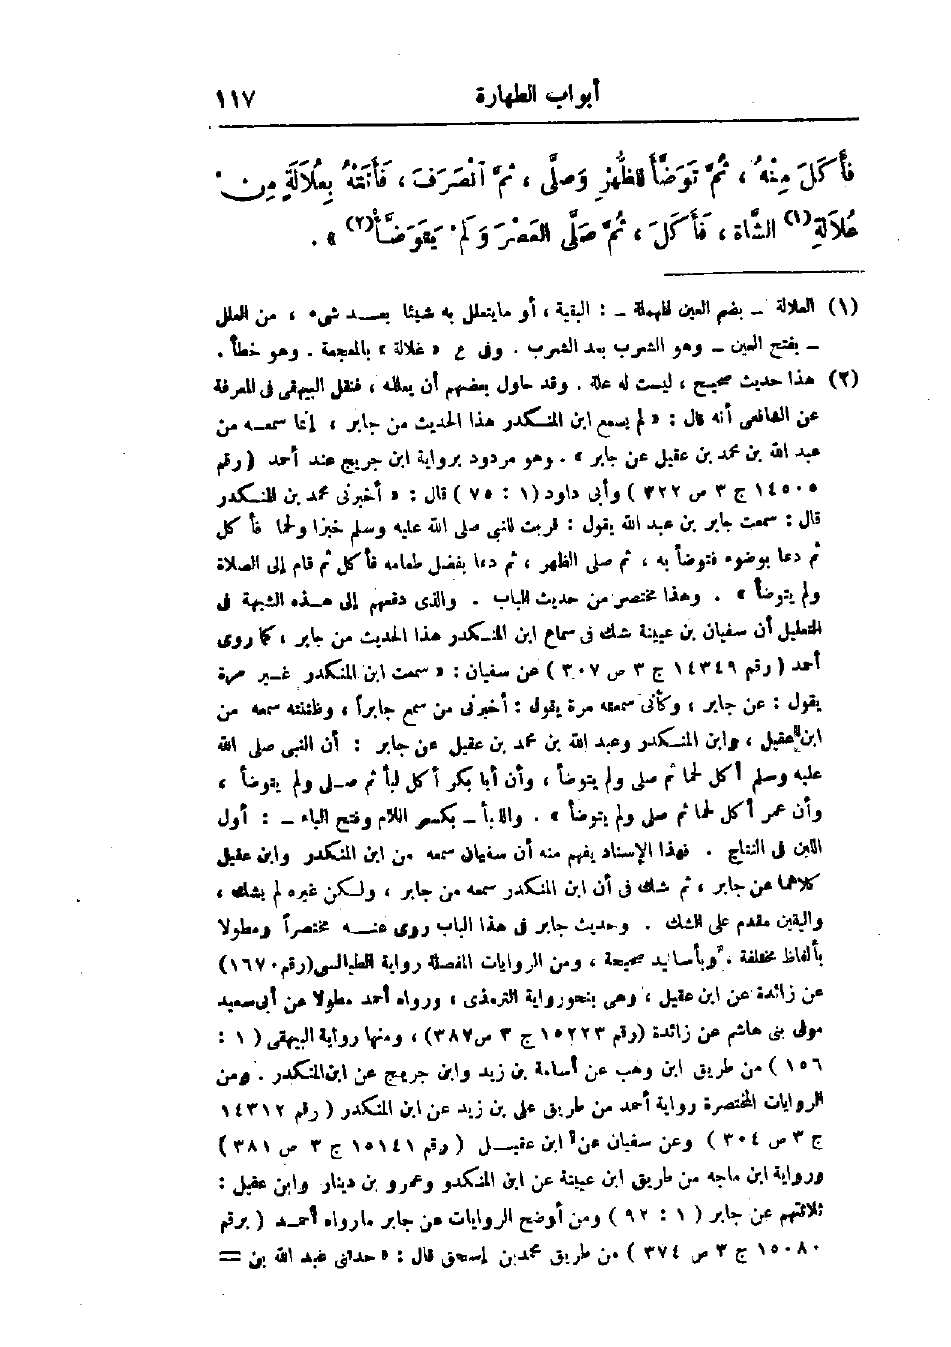 أبواب الطهارة ١١٧
فَأَكَلَ مِنْهُ ، ثُمَّ تَوَضَّأَ لِلظُّهْرِ وَصَلَّى ، ثُمَّ ٱنْصَرَفَ ، فَأَتَتْهُ بِعُلَالَةٍ مِنْ
عُلَالَةِ (١) الشَّاةِ ، فَأَكَلَ ، ثُمَّ صَلَّى الْعَصْرَ وَلَمْ يَتَوَضَّأْ (٢) » .
(١) العلالة ـ بضم العين المهملة ـ : البقية ، أو ما يتعلل به شيئا بعد شىء ، من العلل
ـ بفتح العين ـ وهو الشرب بعد الشرب . وفى ع « غلالة » بالمعجمة . وهو خطأ .
(٢) هذا حديث صحيح ، ليست له علة . وقد حاول بعضهم أن يعلله ، فنقل البيهقى فى المعرفة
عن الشافعى أنه قال : « لم يسمع ابن المنكدر هذا الحديث من جابر ، إنما سمعه من
عبد الله بن محمد بن عقيل عن جابر » . وهو مردود برواية ابن جريج عند أحمد ( رقم
١٤٥٠٥ ج ٣ ص ٣٢٢ ) وأبى داود ( ١ : ٧٥ ) قال : « أخبرنى محمد بن المنكدر
قال : سمعت جابر بن عبد الله يقول : قربت للنبي صلى الله عليه وسلم خبزا ولحما فأكل
ثم دعا بوضوء فتوضأ به ، ثم صلى الظهر ، ثم دعا بفضل طعامه فأكل ثم قام إلى الصلاة
ولم يتوضأ » . وهذا مختصر من حديث الباب . والذى دفعهم إلى هذه الشبهة فى
التعليل أن سفيان بن عيينة شك فى سماع ابن المنكدر هذا الحديث من جابر ، كما روى
أحمد ( رقم ١٤٣٤٩ ج ٣ ص ٣٠٧ ) عن سفيان : « سمعت ابن المنكدر غير مرة
يقول : عن جابر ، وكأنى سمعته مرة يقول : أخبرنى من سمع جابراً ، وظننته سمعه من
ابن عقيل ، وابن المنكدر وعبد الله بن محمد بن عقيل عن جابر : أن النبي صلى الله
عليه وسلم أكل لحما ثم صلى ولم يتوضأ ، وأن أبا بكر أكل لبأ ثم صلى ولم يتوضأ ،
وأن عمر أكل لحما ثم صلى ولم يتوضأ » . واللبأ ـ بكسر اللام وفتح الباء ـ : أول
اللبن فى النتاج . فهذا الإسناد يفهم منه أن سفيان سمعه من ابن المنكدر وابن عقيل
كلاهما عن جابر ، ثم شك فى أن ابن المنكدر سمعه من جابر ، ولكن غيره لم يشك ،
واليقين مقدم على الشك . وحديث جابر فى هذا الباب روى عنه مختصراً ومطولا
بألفاظ مختلفة ، وبأسانيد صحيحة ، ومن الروايات المفصلة رواية الطيالسى (رقم ١٦٧٠)
عن زائدة عن ابن عقيل ، وهى بنحو رواية الترمذى ، ورواه أحمد مطولا عن أبى سعيد
مولى بنى هاشم عن زائدة (رقم ١٥٢٢٣ ج ٣ ص ٣٨٧) ، ومنها رواية البيهقى ( ١ :
١٥٦ ) من طريق ابن وهب عن أسامة بن زيد وابن جريج عن ابن المنكدر . ومن
الروايات المختصرة رواية أحمد من طريق على بن زيد عن ابن المنكدر ( رقم ١٤٣١٢
ج ٣ ص ٣٠٤ ) وعن سفيان عن ابن عقيل ( رقم ١٥١٤١ ج ٣ ص ٣٨١ )
ورواية ابن ماجه من طريق ابن عيينة عن ابن المنكدر وعمرو بن دينار وابن عقيل :
ثلاثتهم عن جابر ( ١ : ٩٢ ) ومن أوضح الروايات عن جابر ما رواه أحمد ( برقم
١٥٠٨٠ ج ٣ ص ٣٧٤ ) من طريق محمد بن إسحق قال : « حدثنى عبد الله بن =